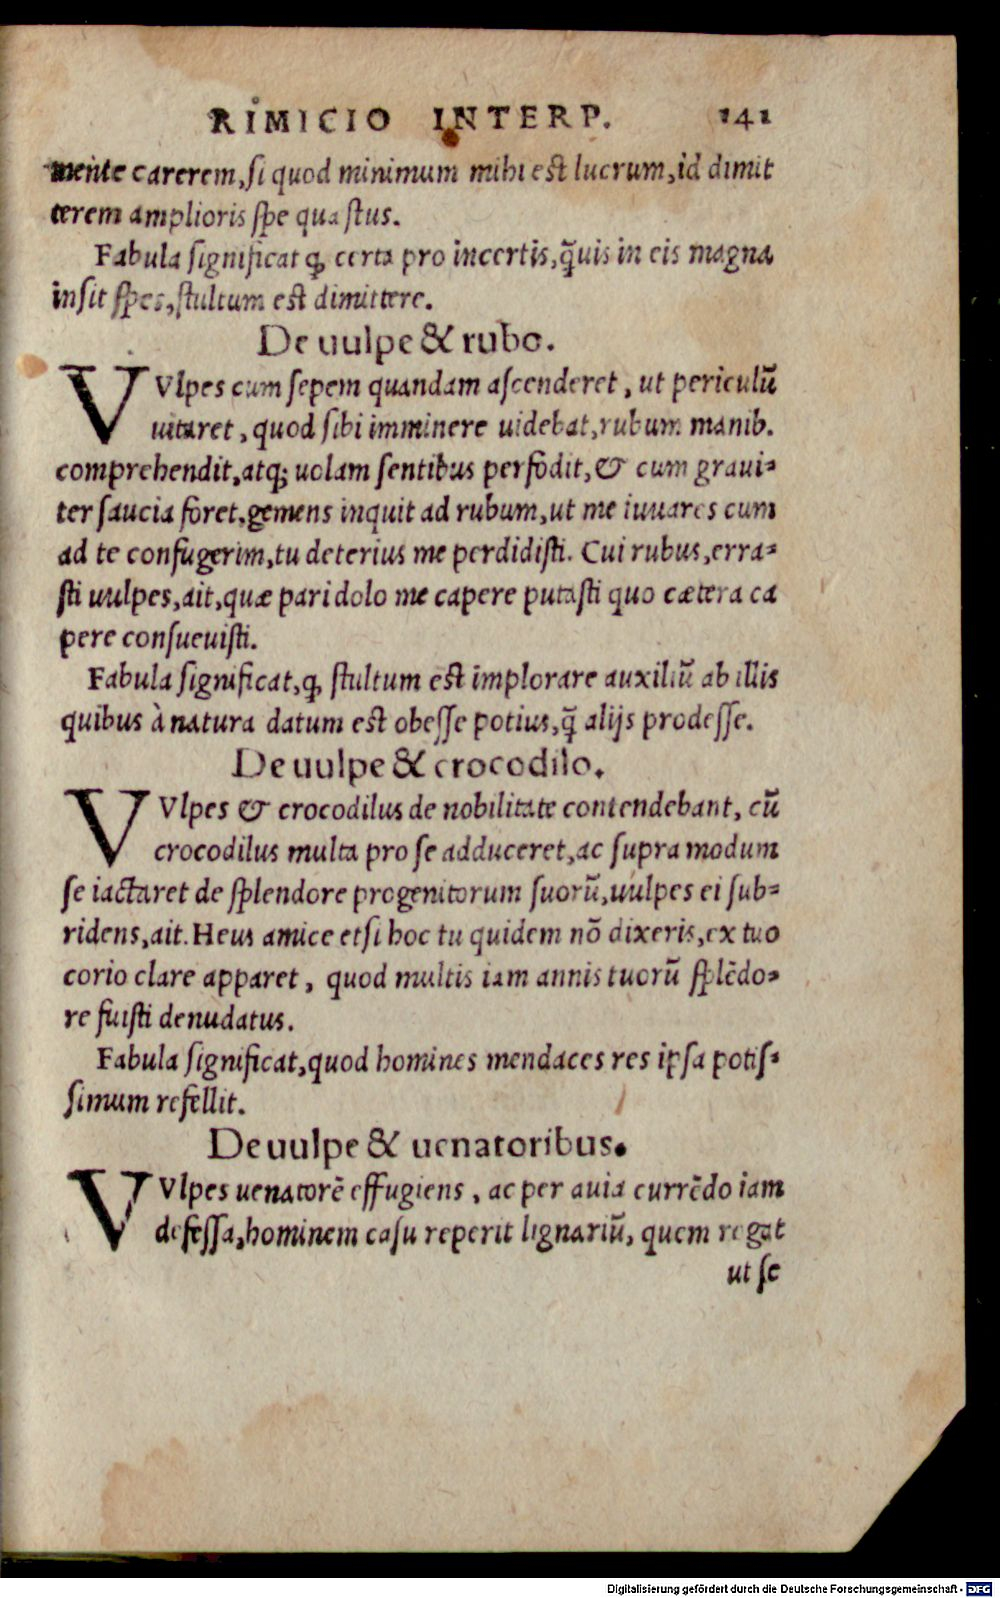 RIMICIO INTERP. 141
mente carerem, si quod minimum mihi est lucrum, id dimit
terem amplioris spe quæstus.
Fabula significat ꝙ certa pro incertis, q̃uis in eis magna
insit spes, stultum est dimittere.
De uulpe & rubo.
VVlpes cum sepem quandam ascenderet, ut periculũ
uitaret, quod sibi imminere uidebat, rubum manib.
comprehendit, atq; uolam sentibus perfodit, & cum graui-
ter saucia foret, gemens inquit ad rubum, ut me iuuares cum
ad te confugerim, tu deterius me perdidisti. Cui rubus, erra-
sti uulpes, ait, quæ pari dolo me capere putasti quo cætera ca
pere consueuisti.
Fabula significat, ꝙ stultum est implorare auxiliũ ab illis
quibus à natura datum est obesse potius, q̃ alijs prodesse.
De uulpe & crocodilo.
VVlpes & crocodilus de nobilitate contendebant, cũ
crocodilus multa pro se adduceret, ac supra modum
se iactaret de splendore progenitorum suorũ, uulpes ei sub-
ridens, ait. Heus amice etsi hoc tu quidem nõ dixeris, ex tuo
corio clare apparet, quod multis iam annis tuorũ splẽdo-
re fuisti denudatus.
Fabula significat, quod homines mendaces res ipsa potis-
simum refellit.
De uulpe & uenatoribus.
VVlpes uenatorẽ effugiens, ac per auia currẽdo iam
defessa, hominem casu reperit lignariũ, quem rogat
ut se
Digitalisierung gefördert durch die Deutsche Forschungsgemeinschaft - DFG